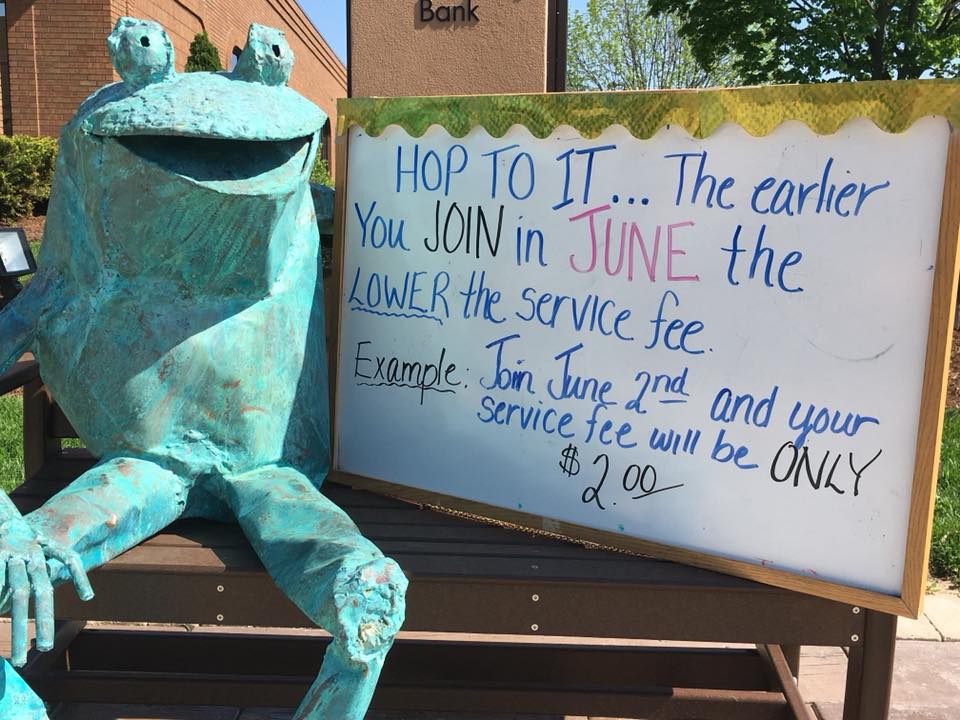 Bank
HOP TO IT... The earlier
You JOIN in JUNE the
LOWER the service fee.
Example: Join June 2nd and your
service fee will be ONLY
$2.00